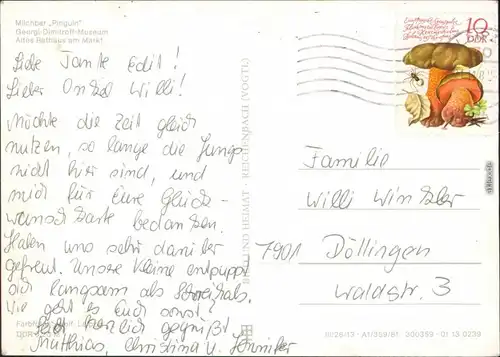 Milchbar „Pinguin"
Georgi-Dimitroff-Museum
Altes Rathaus am Markt
Liebe Tante Edit!
Lieber Onkel Willi!
Möchte die Zeit gleich
nutzen, so lange die Jungs
nicht hier sind, und
mich für Eure Glück-
wunschkarte bedanken.
Haben uns sehr darüber
gefreut. Unsere Kleine entpuppt
sich langsam als Schreihals.
Wie geht es Euch sonst?
Seid herzlich gegrüßt
Matthias, Christina u. Jennifer
BILD UND HEIMAT · REICHENBACH (VOGTL)
10
DDR
Familie
Willi Winkler
7901 Döllingen
Waldstr. 3
III/26/13 A1/359/81 300359 01 13 0239